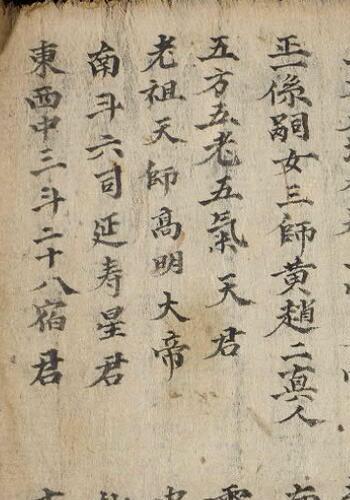 正一係嗣女三師黄趙二真人
五方五老五氣天君
老祖天師髙明大帝
南斗六司延寿星君
東西中三斗二十八宿君